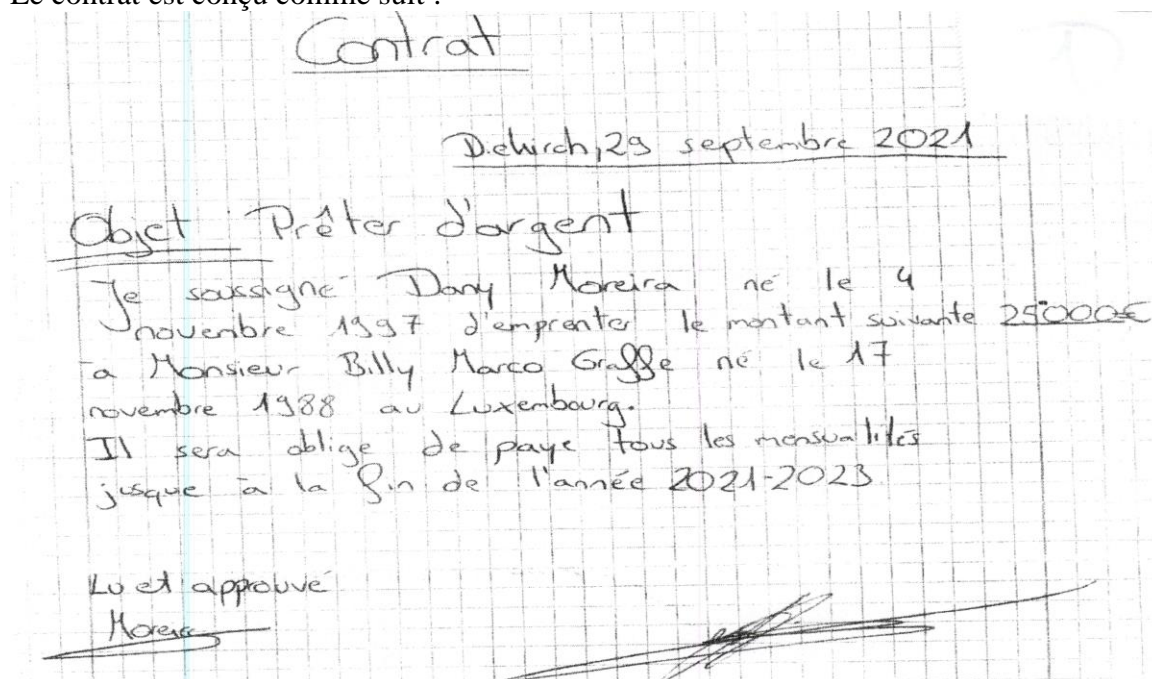 Le contrat est conçu comme suit :
Contrat
Diekirch, 29 septembre 2021
Objet : Prêter d'argent
Je soussigné Dany Moreira né le 4
novembre 1997 d'emprenter le montant suivante 25'000€
à Monsieur Billy Marco Graffe né le 17
novembre 1988 au Luxembourg.
Il sera oblige de paye tous les mensualités
jusque à la fin de l'année 2021-2023
Lu et approuvé
Moreira